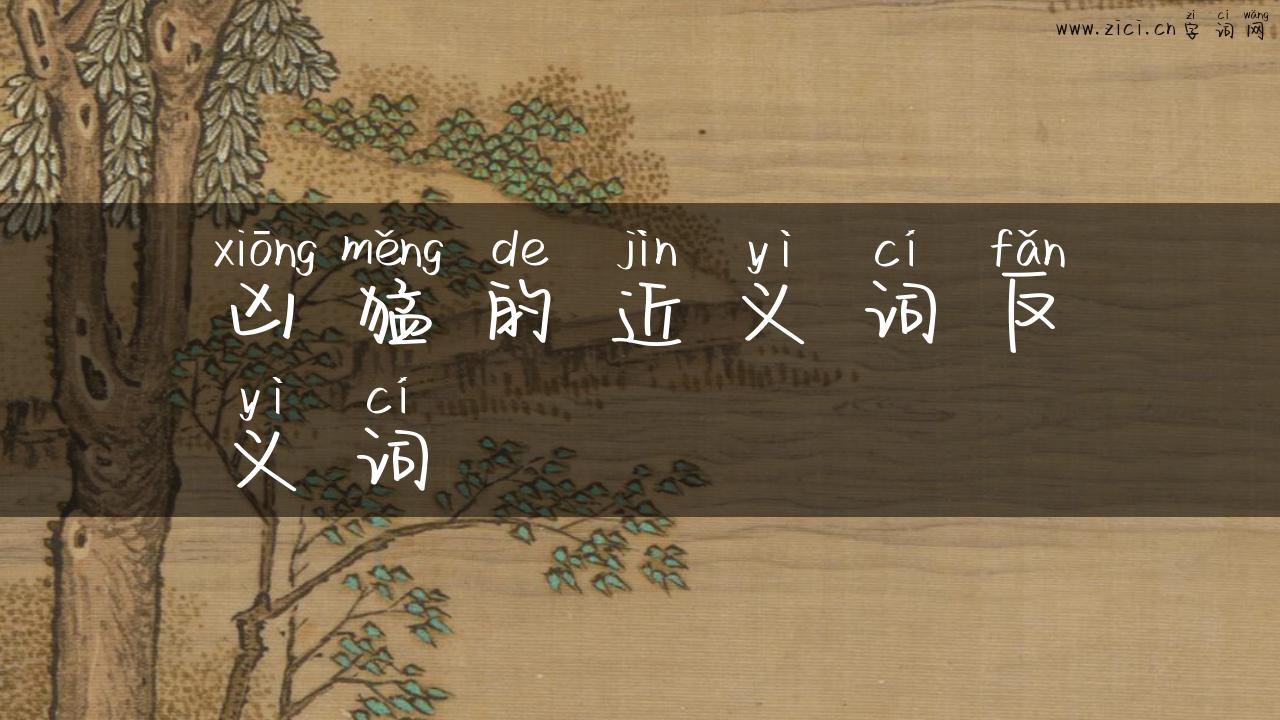 zì cí wǎng
www.zici.cn 字词网
xiōng měng de jìn yì cí fǎn
凶猛的近义词反
yì cí
义词